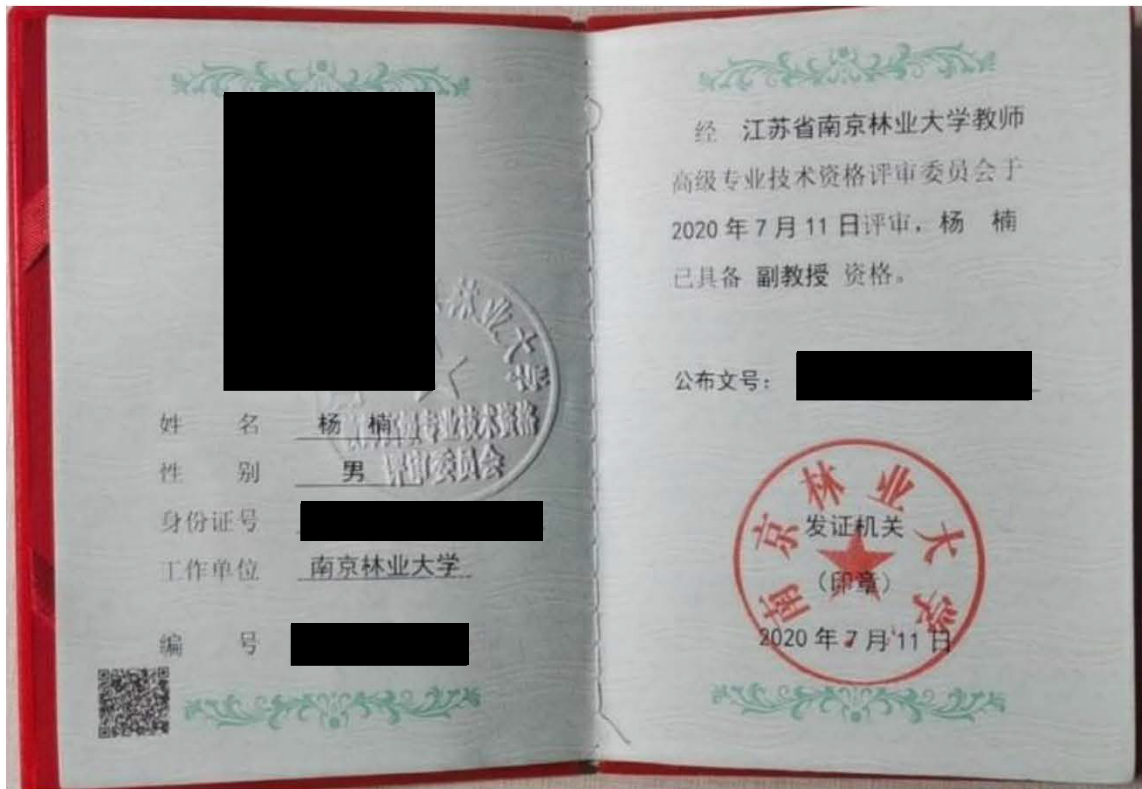 姓 名 杨 楠
性 别 男
身份证号
工作单位 南京林业大学
编 号
林业大学
专业技术资格
评审委员会
经 江苏省南京林业大学教师
高级专业技术资格评审委员会于
2020 年 7 月 11 日评审，杨 楠
已具备 副教授 资格。
公布文号：
南京林业大学
发证机关
（印章）
2020 年 7 月 11 日